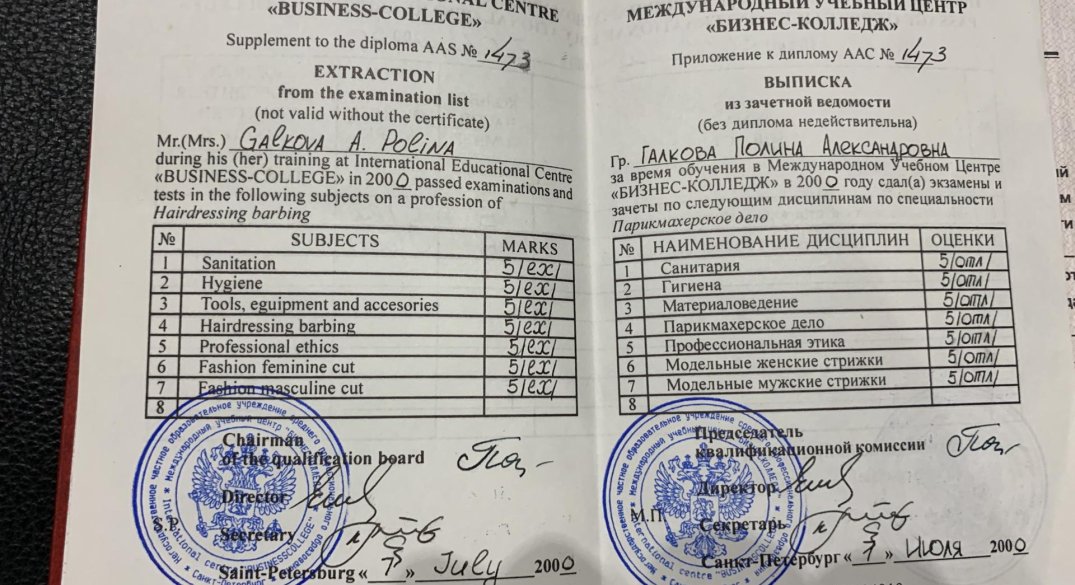 NAL CENTRE
«BUSINESS-COLLEGE»
Supplement to the diploma AAS № 1473
EXTRACTION
from the examination list
(not valid without the certificate)
Mr.(Mrs.) Galkova A. Polina
during his (her) training at International Educational Centre
«BUSINESS-COLLEGE» in 2000 passed examinations and
tests in the following subjects on a profession of
Hairdressing barbing
№ SUBJECTS MARKS
1 Sanitation 5/ex/
2 Hygiene 5/ex/
3 Tools, eguipment and accesories 5/ex/
4 Hairdressing barbing 5/ex/
5 Professional ethics 5/ex/
6 Fashion feminine cut 5/ex/
7 Fashion masculine cut 5/ex/
8
Chairman
of the qualification board
Director
S.P.
Secretary
Saint-Petersburg « 7 » July 2000
МЕЖДУНАРОДНЫЙ УЧЕБНЫЙ ЦЕНТР
«БИЗНЕС-КОЛЛЕДЖ»
Приложение к диплому ААС № 1473
ВЫПИСКА
из зачетной ведомости
(без диплома недействительна)
Гр. Галкова Полина Александровна
за время обучения в Международном Учебном Центре
«БИЗНЕС-КОЛЛЕДЖ» в 2000 году сдал(а) экзамены и
зачеты по следующим дисциплинам по специальности
Парикмахерское дело
№ НАИМЕНОВАНИЕ ДИСЦИПЛИН ОЦЕНКИ
1 Санитария 5/отл/
2 Гигиена 5/отл/
3 Материаловедение 5/отл/
4 Парикмахерское дело 5/отл/
5 Профессиональная этика 5/отл/
6 Модельные женские стрижки 5/отл/
7 Модельные мужские стрижки 5/отл/
8
Председатель
квалификационной комиссии
Директор
М.П.
Секретарь
Санкт-Петербург « 7 » Июля 2000